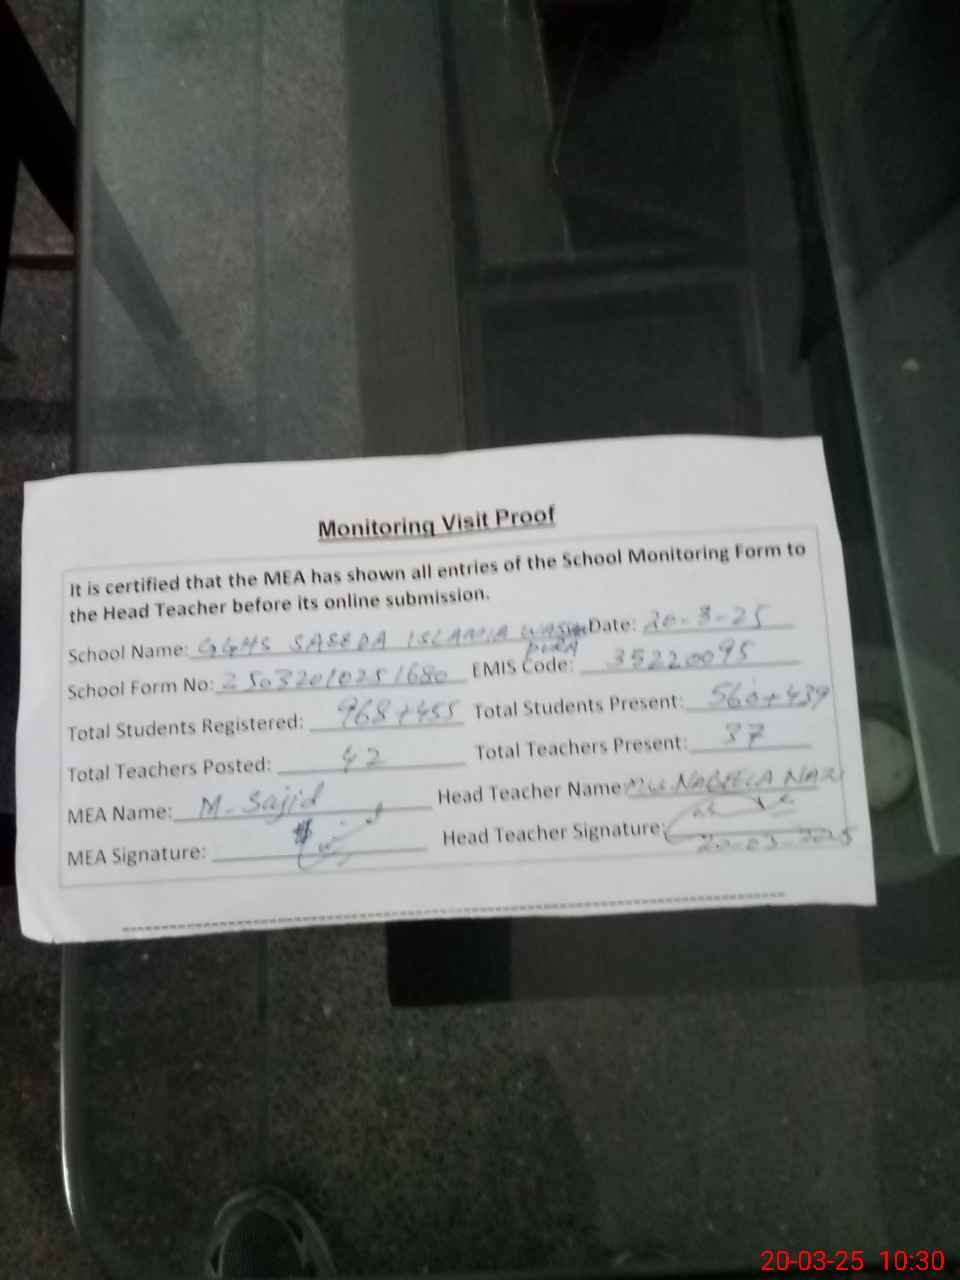 Monitoring Visit Proof
It is certified that the MEA has shown all entries of the School Monitoring Form to
the Head Teacher before its online submission.
School Name: GGHS SAEEDA ISLAMIA WASUNPURA Date: 20-3-25
School Form No: 25032010251680 EMIS Code: 35220095
Total Students Registered: 968+455 Total Students Present: 560+439
Total Teachers Posted: 42 Total Teachers Present: 37
MEA Name: M. Sajid Head Teacher Name NABEELA NAZ
MEA Signature: Head Teacher Signature:
20-03-2025
20-03-25 10:30